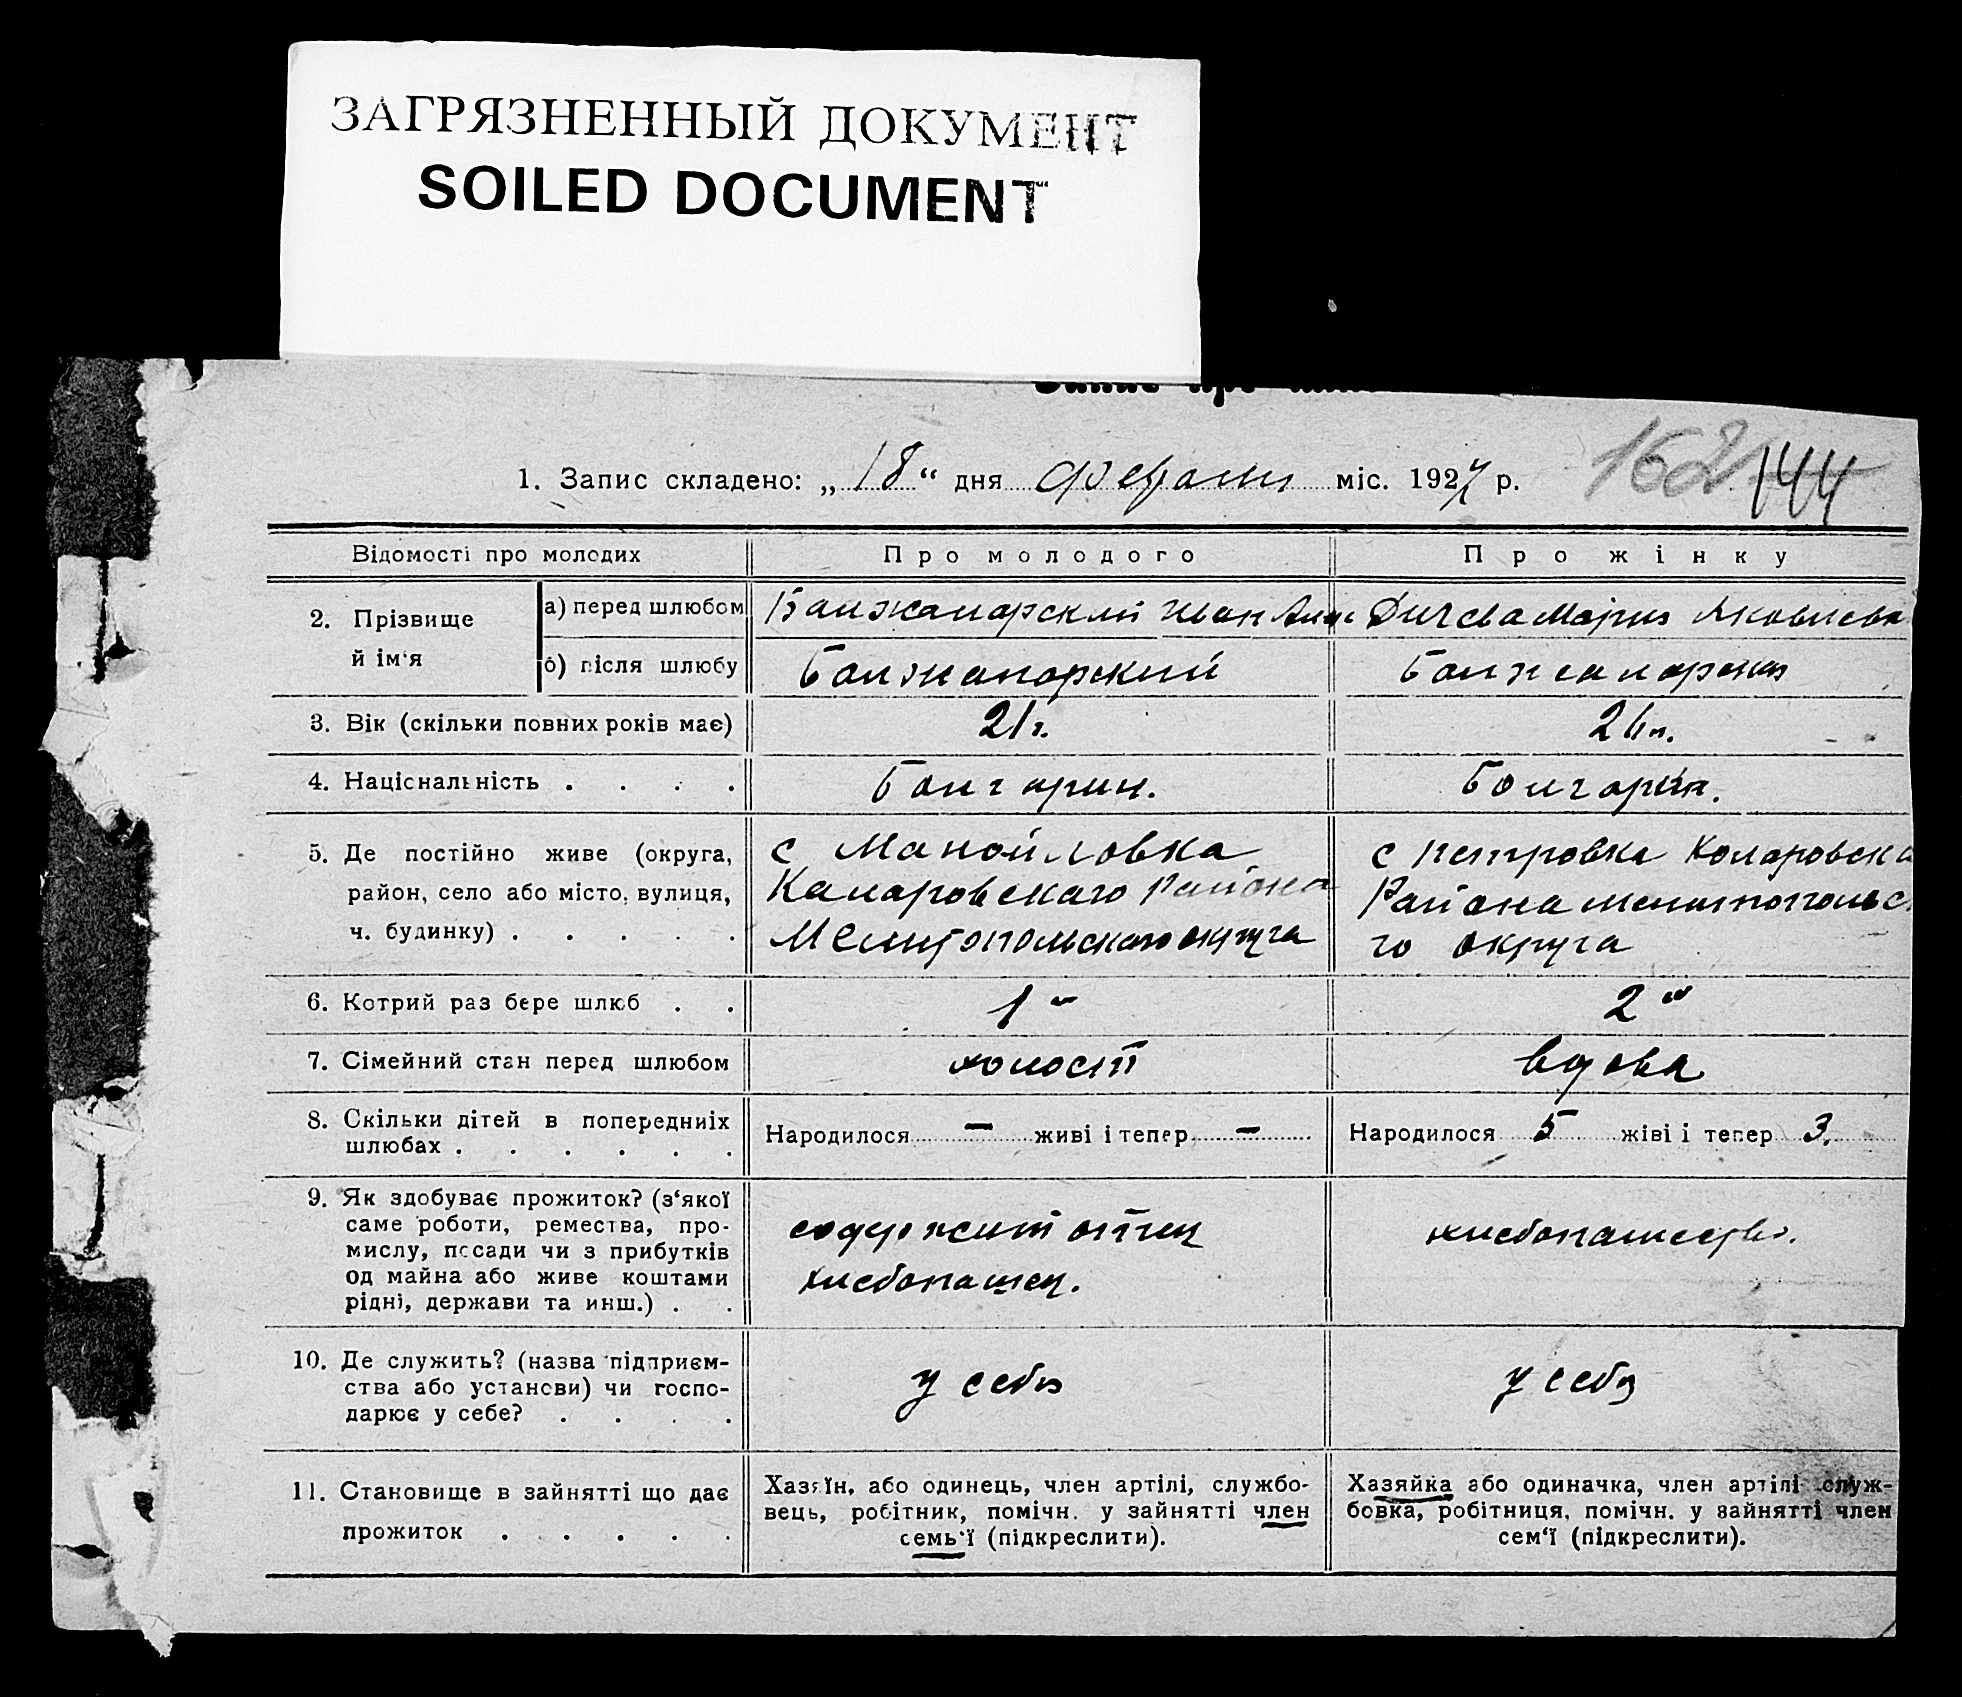 ЗАГРЯЗНЕННЫЙ ДОКУМЕНТ
SOILED DOCUMENT
162 144
1. Запис складено: „18“ дня февраля міс. 1927 р.
Відомості про молодих
Про молодого
Про жінку
2. Прізвище й ім‘я
а) перед шлюбом
Иван
Дичева Мария Яковлевн
б) після шлюбу
3. Вік (скільки повних років має)
21г.
26л.
4. Національність . . . .
Болгарин.
Болгарин.
5. Де постійно живе (округа,
район, село або місто, вулиця,
ч. будинку) . . . . .
с Манойловка
Коларовского Района
Мелитопольского округа
с Петровка Коларовска
Района Мелитопольс
го округа
6. Котрий раз бере шлюб . .
1й
2й
7. Сімейний стан перед шлюбом
холост
вдова
8. Скільки дітей в попередниіх
шлюбах . . . . . .
Народилося — живі і тепер —
Народилося 5 жіві і тепер 3.
9. Як здобуває прожиток? (з‘якої
саме роботи, ремества, про-
мислу, посади чи з прибутків
од майна або живе коштами
рідні, держави та инш.) . .
содержит отец
хлебопашец.
хлебопашество.
10. Де служить? (назва підприєм-
ства або установи) чи госпо-
дарює у себе? . . . .
у себя
у себя
11. Становище в зайнятті що дає
прожиток . . . . .
Хазяїн, або одинець, член артілі, службо-
вець, робітник, помічн. у зайнятті член
семь‘ї (підкреслити).
Хазяйка або одиначка, член артілі служ-
бовка, робітниця, помічн. у зайнятті член
сем‘ї (підкреслити).